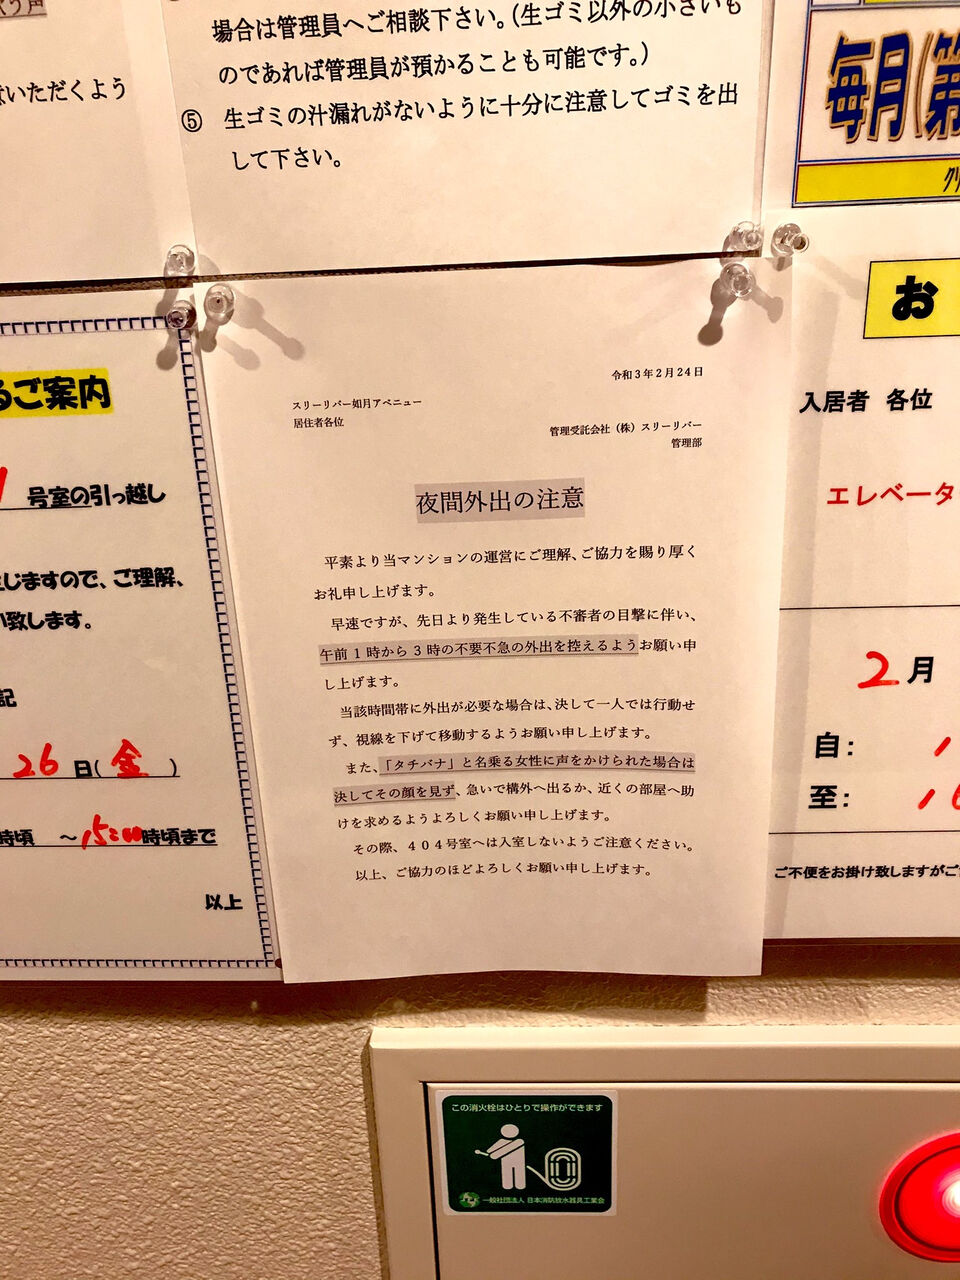 場合は管理員へご相談下さい。(生ゴミ以外の小さいも
のであれば管理員が預かることも可能です。)
⑤ 生ゴミの汁漏れがないように十分に注意してゴミを出
して下さい。
いただくよう
毎月(第
お
入居者 各位
エレベータ
2月
自:
至:
ご不便をお掛け致しますがご
るご案内
号室の引っ越し
じますので、ご理解、
い致します。
記
26日(金)
時頃 ~15:00時頃まで
以上
令和3年2月24日
スリーリバー如月アベニュー
居住者各位
管理受託会社(株)スリーリバー
管理部
夜間外出の注意
平素より当マンションの運営にご理解、ご協力を賜り厚く
お礼申し上げます。
早速ですが、先日より発生している不審者の目撃に伴い、
午前1時から3時の不要不急の外出を控えるようお願い申
し上げます。
当該時間帯に外出が必要な場合は、決して一人では行動せ
ず、視線を下げて移動するようお願い申し上げます。
また、「タチバナ」と名乗る女性に声をかけられた場合は
決してその顔を見ず、急いで構外へ出るか、近くの部屋へ助
けを求めるようよろしくお願い申し上げます。
その際、404号室へは入室しないようご注意ください。
以上、ご協力のほどよろしくお願い申し上げます。
この消火栓はひとりで操作ができます
一般社団法人 日本消防放水器具工業会